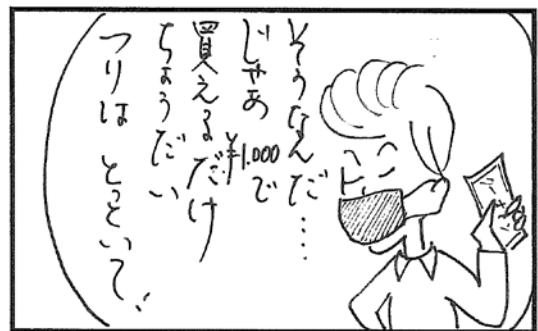 そうなんだ‥‥
じゃあ ¥1.000で
買えるだけ
ちょうだい
つりは とっといて、